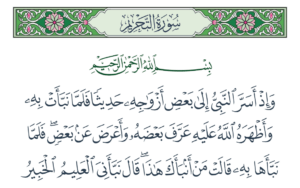 سُورَةُ التَّحۡرِيمِ
بِسۡمِ ٱللَّهِ ٱلرَّحۡمَٰنِ ٱلرَّحِيمِ
وَإِذۡ أَسَرَّ ٱلنَّبِيُّ إِلَىٰ بَعۡضِ أَزۡوَٰجِهِۦ حَدِيثٗا فَلَمَّا نَبَّأَتۡ بِهِۦ
وَأَظۡهَرَهُ ٱللَّهُ عَلَيۡهِ عَرَّفَ بَعۡضَهُۥ وَأَعۡرَضَ عَنۢ بَعۡضٖۖ فَلَمَّا
نَبَّأَهَا بِهِۦ قَالَتۡ مَنۡ أَنۢبَأَكَ هَٰذَاۖ قَالَ نَبَّأَنِيَ ٱلۡعَلِيمُ ٱلۡخَبِيرُ